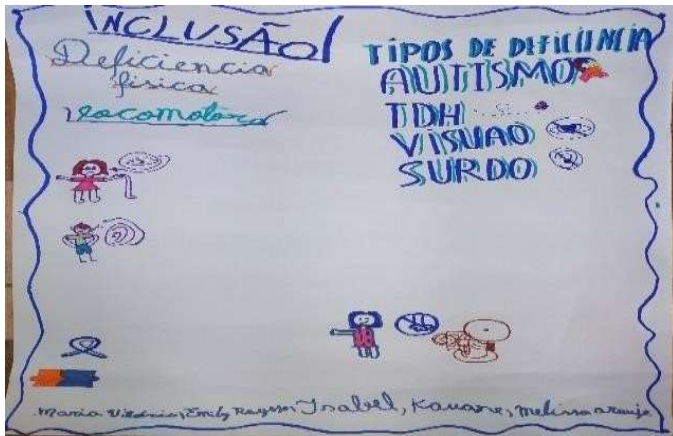 INCLUSÃO
Deficiencia
fisica
locomotora
TIPOS DE DEFICIÊNCIA
AUTISMO
TDH
VISUAO
SURDO
Maria Vitória, Emily Rayssa, Isabel, Kauane, Melissa araujo